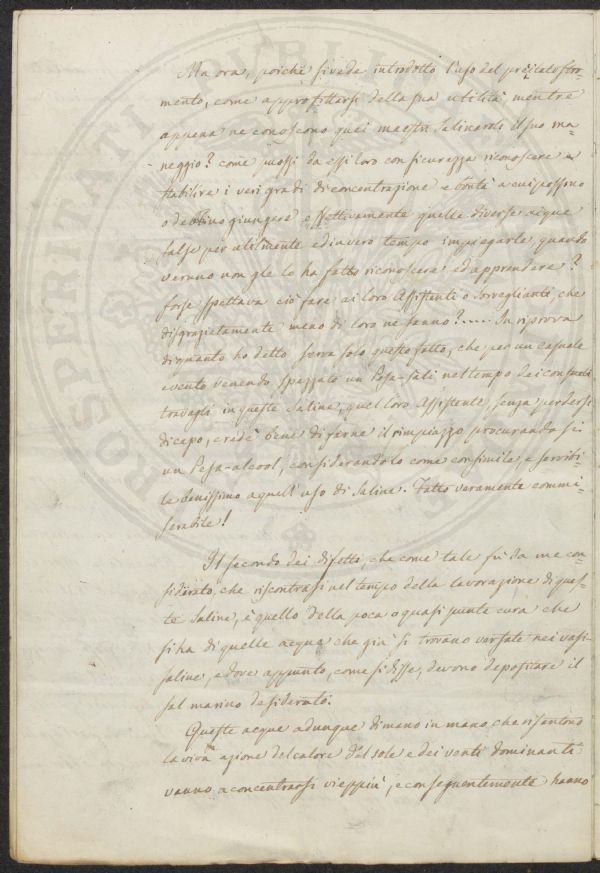 Ma ora, poichè si vede introdotto l'uso del precitato stro-
mento, come approfittarsi della sua utilità, mentre
appena ne conoscono quei maestri Salinardi il suo ma-
neggio? come puossi da essi loro con sicurezza riconoscere e
stabilire i veri gradi di concentrazione e bontà a cui possono
o debbino giungere rispettivamente quelle diverse acque
salse per utilmente ed in vero tempo impiegarle, quando
veruno non gle lo ha fatto riconoscere ed apprendere?
forse spettava ciò fare ai loro Assistenti o Sorveglianti, che
disgraziatamente meno di loro ne sanno?..... In riprova
di quanto ho detto serva solo questo fatto, che per un casuale
evento venendo spezzato un Pesa-sali nel tempo dei consueti
travagli in queste Saline, quel loro Assistente, senza perdersi
di capo, credè bene di farne il rimpiazzo procurandosi
un Pesa-alcool, considerandolo come consimile e servibi-
le benissimo a quell'uso di Saline. Fatto veramente commi-
serabile!
Il secondo dei difetti, che come tale fù da me con-
siderato, che riscontrasi nel tempo della lavorazione di ques-
te Saline, è quello della poca o quasi punte cura che
si ha di quelle acque che già si trovano versate nei vasi
saline, e dove appunto, come si disse, devono depositare il
sal marino desiderato.
Queste acque adunque di mano in mano, che risentono
la viva azione del calore del sole e dei venti dominanti
vanno a concentrarsi vieppiù, e conseguentemente hanno
PROSPERITATI PVBLICAE